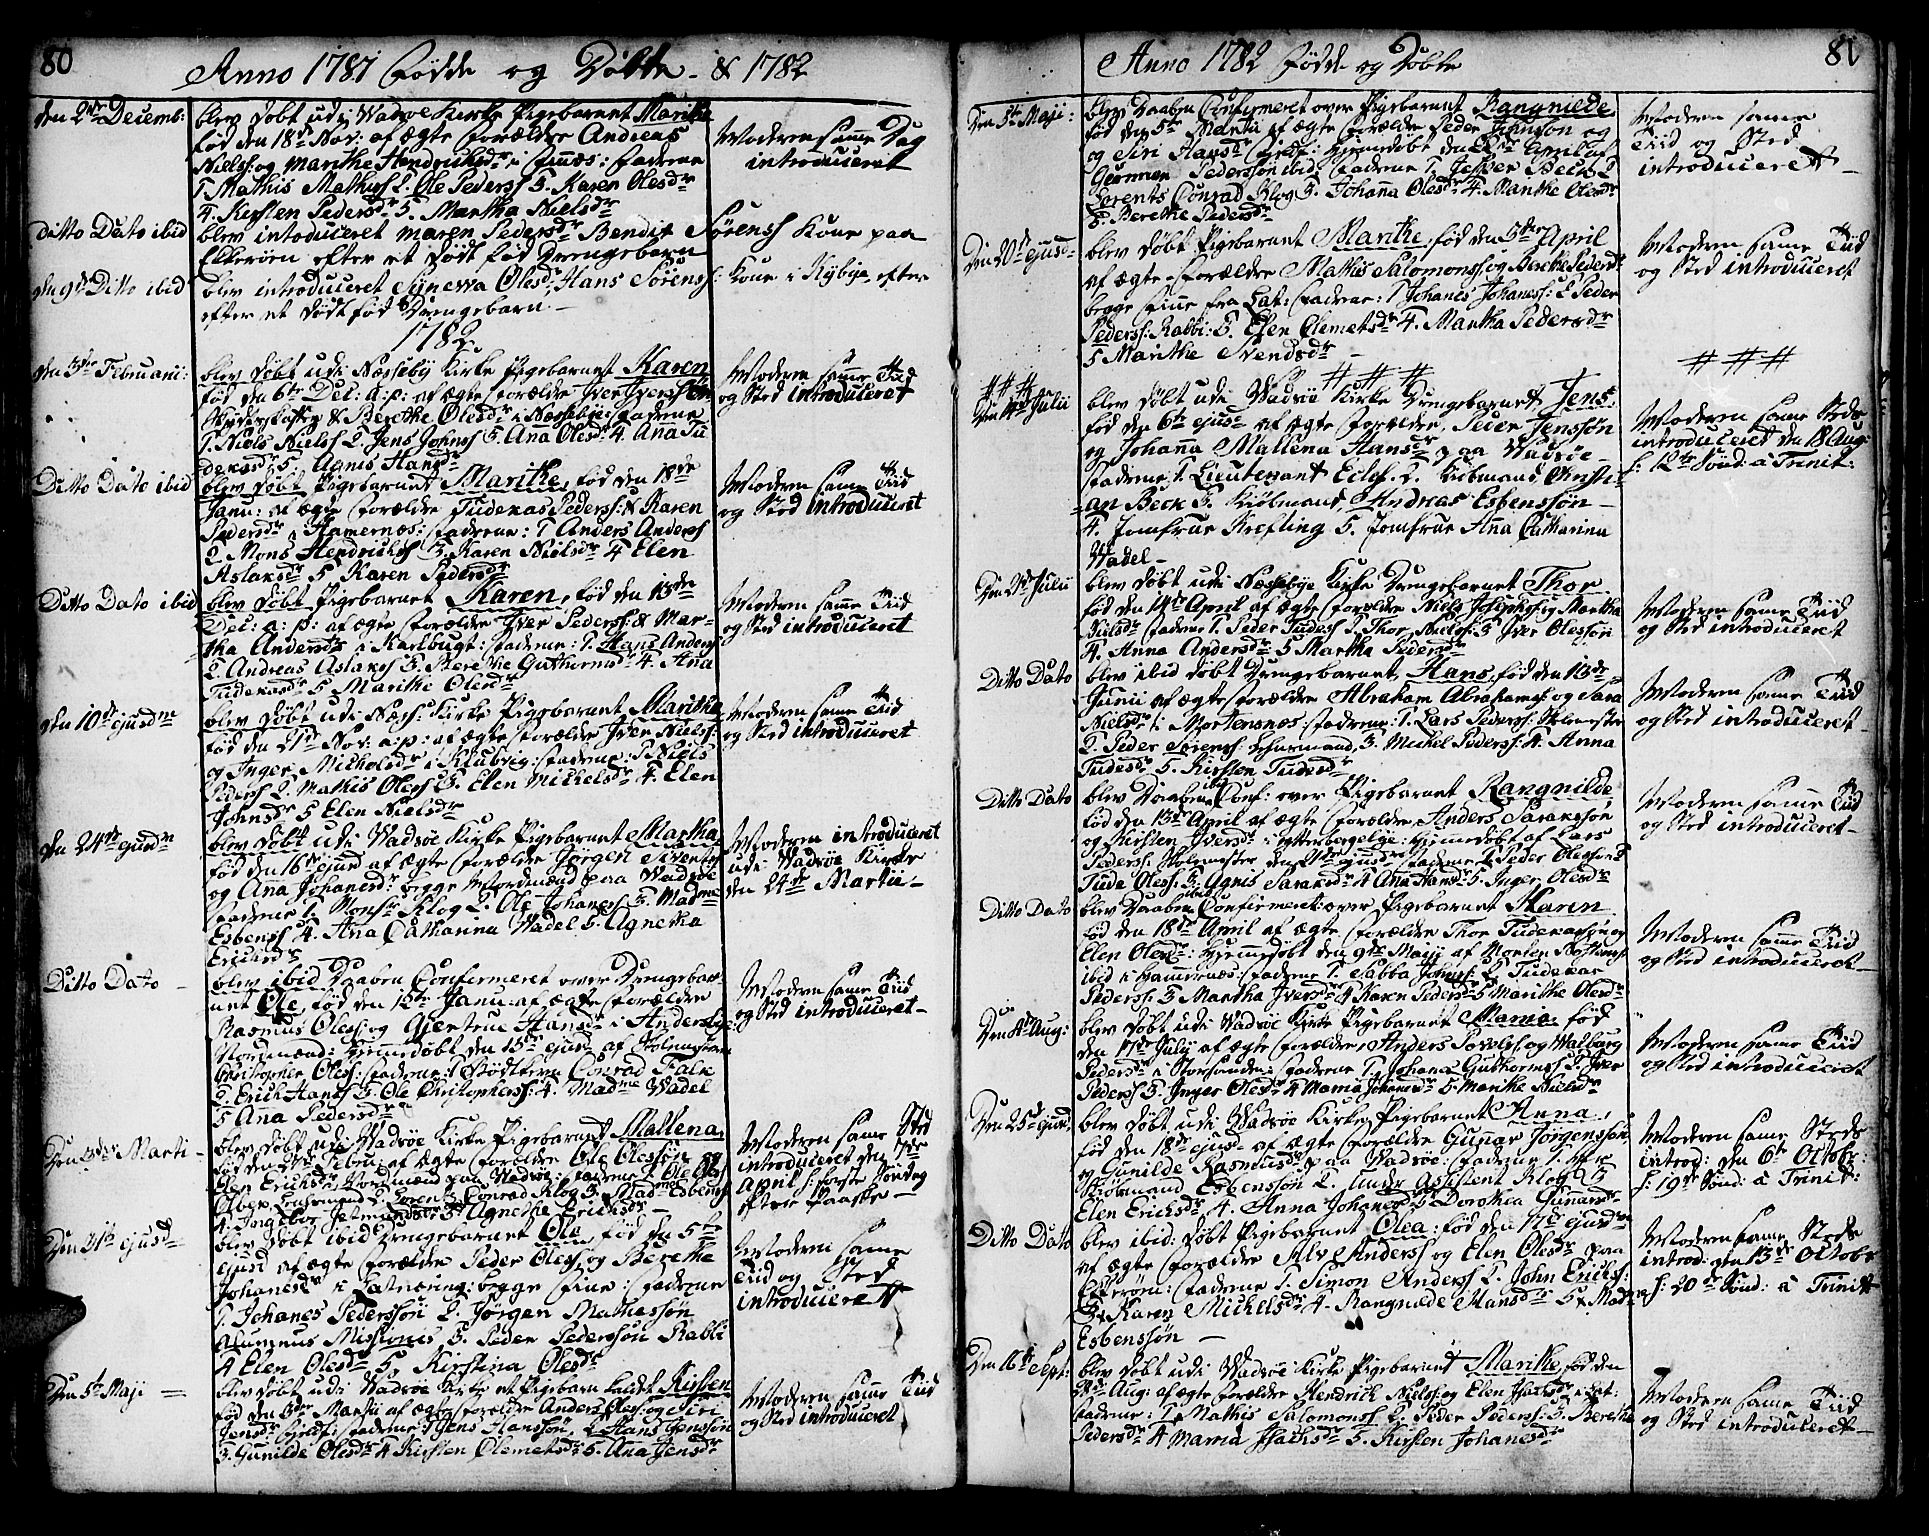 80
Anno 1781 Fødde og Døbte & 1782
den 2den Decemb:
blev døbt udi Wadsøe Kirke Pigebarnet Marithe
fød den 18de Nov: af ægte Forældre Andreas
Niels: og Marithe Hendrichsdr i : Fadderne
1. Mathis Mathiess 2. Ole Pederss 3. Karen Olesdr
4. Kirsten Pedersdr 5. Martha Nielsdr
Moderen samme Dag
introduceret
Ditto Dato ibid
blev intoduceret Maren Pedersdr Bendix Sørenss Kone paa
Ekkerøen efter et dødt fød Drengebarn
den 9de Ditto ibid
blev introduceret Synerva Olesdr Hans Sørenss: Kone i Kybye efter
efter et dødt fød Drengebarn
1782
den 3die Februarii:
blev døbt udi Næsseby Kirke Pigebarnet Karen
fød den 6te Dec: a: p: af ægte Forældre Iver Iverssøn
& Berethe Olesdr i Næssebye: Fadderne
1. Niels Nielss 2. Jens Johnss 3. Anna Olesdr 4. Anna Tu
dekasdr 5. Agnis Hansdr
Moderen samme Tiid
og Sted introduceret
Ditto Dato ibid
blev døbt Pigebarnet Marithe, fød den 18de
Janu: af ægte Forældre Tudekas Pederss: & Karen
Pedersdr i Hamernæs: Fadderne: 1 Anders Anderss
2 Mons Hendrichss 3. Karen Nielsdr 4 Elen
Aslaksdr 5 Karen Pedersdr
Moderen samme Tiid
og Sted introduceret
Ditto Dato ibid
blev døbt Pigebarnet Karen, fød den 13de
Dec: a: p: af ægte Forældre Iver Pederss: & Mar-
tha Andersdr i Karlbugt: Fadderne: 1. Hans Anderss
2. Andreas Aslakss 3. Berethe Guthormsdr 4. Anna
Tudekasdr 5 Marithe Olesdr
Moderen samme Tiid
og Sted introduceret
den 10de ejusdm
blev døbt udi Næss: Kirke Pigebarnet Maritha
fød den 21de Nov: a: p: af ægte Forældre Iver Nielss:
og Inger Michelsdr i Klubvig: Fadderne: 1. Niels
Pederss 2. Mathis Oless 3. Elen Michelsdr 4. Elen
Johnsdr 5 Elen Nielsdr
Moderen samme Tiid
og Sted introduceret
den 24de ejusdm
blev døbt udi Wadsøe Kirke Pigebarnet Martha
fød den 16de ejusd af ægte Forældre Jørgen
og Anna Johanesdr: begge Nordmænd paa Wadsøe
Fadderne 1. Monsr Klog 2. Ole Johaness: 3. Madme
Esbenss 4. Anna Catharina Wadel 5. Agnetha
Erichsdr
Moderen introduceret
udi Wadsøe Kirke
den 24de Martii
Ditto Dato
blev ibid Daaben Confirmeret over Drengebar-
net Ole, fød den 12te Janu: af ægte Forældre
Rasmus Oless: og Gjertrue Hansdr i Andersbye
Nordmænd: Hjemmedøbt den 13de ejusd af Skolemester
Christopher Oless: Fadderne: 1. Conrad Falk
2. Erich Hanss 3. Ole Christophers: 4. Madme Wadel
5 Anna Pedersdr
Moderen samme Tiid
og Sted introduceret
Den 3die Marti
blev døbt udi Wadsøe Kirke Pigebarnet Mallena
fød den Febru: af ægte Forældre Ole Olessøn &
Elen Erichsdr, Nordmænd paa Wadsøe: Fadderne: 1 Ole Oless
2. Lorentz Conrad Klog 3. Madme Esbenss
4. Ingebor 5 Agnethe Erichsdr
Moderen samme Sted
introduceret den 7de
April f: første Søndag
efter Paaske
Den 31te ejusd
blev døbt ibid Drengebarnet Ole, fød den 5te
ejusd af ægte Forældre Peder Oless og Berethe
Johanesdr i Latnæring: begge Finne: Fadderne
1. Johanes Pederssøn 2. Jørgen Mathessøn
Alumnus Missionis 3. Peder Pederssøn Rabbi
4 Elen Olesdr 5. Kirstina Olesdr
Moderen samme
Tiid og Sted
introduceret
Den 5te Maji
blev døbt udi Wadsøe Kirke et Pigebarn kaldet Kirsten
fød den 3die Martii af ægte Forældre Anders Oless: og Siri
Jensdr: Fadderne 1 Jens Hanssøn, 2 Hans Jenssøn
3. Gunilde Olesdr 4 Kirsten Clemetsdr 5. Ana Jensdr
Moderen samme Tiid
og Sted introduceret
81
Anno 1782 Fødde og Døbte
Den 5te Maji:
blev Daaben Confirmeret over Pigebarnet Rangnilde
fød den 5te Martii af ægte Forældre Peder Johnson og
og Siri Hansdr : hjemdøbt den April af
Pederssøn ibid: Fadderne 1. Jesper Beck 2
Lorents Conrad Klog 3. Johanna Olesdr 4. Marithe Olesdr
5. Berethe Pedersdr
Moderen samme
Tiid og Sted
introduceret
Den 20de ejusd
blev døbt Pigebarnet Marithe, fød den 5te April
af ægte Forældre Mathis Salomonss: og Berethe Pedersdr
begge Finne fra : Fadderne: 1 Johanes Johaness: 2 Peder
Pederss: Rabbi: 3. Elen Clemetsdr 4. Martha Pedersdr
5 Marithe Svendsdr
Moderen samme Tiid
og Sted introduceret
# # #
# # #
# # #
Den 14de Julii
blev døbt udi Wadsøe Kirke Drengebarnet Jens
fød den 6te ejusd af ægte Forældre, Peder Jenssøn
og Johanna Mallena Hansdr paa Wadsøe
Fadderne 1. Lieutenant Eclef. 2. Kiøbmand Christi-
an Beck 3. Kiøbmand Andreas Esbenssøn
4. Jomfrue Krefting 5. Jomfrue Anna Catharina
Wadel
Moderen samme Steds
introduceret den 18 Aug:
f: 12te Sønd: a Trinit:
Den 21de Julii
blev døbt udi Næssebye Kirke Drengebarnet Thor
fød den 14de April af ægte Forældre Niels Josephss: og Martha
Nielsdr Fadderne 1. Peder Tudess 2. Thor Nielss: 3 Iver Olessøn
4. Anna Andersdr 5 Martha Pedersdr
Moderen samme Tiid
og Sted introduceret
Ditto Dato
blev ibid døbt Drengebarnet Hans, fød den 13de
Junii af ægte Forældre Abraham Abrahamss og Sara
Nielsdr i Mortensnæs: Fadderne: 1. Lars Pederss: Skolemester
2. Peder Sørenss: Lehnsmand, 3. Michel Pederss: 4. Anna
Tudesdr 5. Kirsten Tudesdr
Moderen samme Tiid
og Sted introduceret
Ditto Dato
blev Daaben ibid Conf: over Pigebarnet Rangnilde
fød den 13de April af ægte Forældre Anders Sarakssøn
og Kirsten Iversdr i : Hjemmedøbt af Lars
Pederss: Skolemester den ejusd: Fadderne 1. Peder Olessøn 2
Tude Oless: 3. Agnis Saraksdr 4 Anna Hansdr 5. Inger Olesdr
Moderen samme Tiid
og Sted introduceret
Ditto Dato
blev Daaben ibid Confirmeret over Pigebarnet Karen
fød den 18de April af ægte Forældre Thor Tudekass: og
Elen Olesdr: Hjemmedøbt den 9de Maji af Morten
ibid i Hammernæs: Fadderne 1. Sabba Johnss: 2. Tudekas
Pederss: 3 Martha Iversdr 4 Karen Pedersdr 5 Marithe Olesdr
Moderen samme Tiid
og Sted introduceret
Den 4de Aug:
blev døbt udi Wadsøe Kirke Pigebarnet Maria fød
den 17de July af ægte Forældre, Anders Povelss: og Walborg
Pedersdr i Storsande: Fadderne 1. Johanes Guthormss 2. Iver
Pederss 3. Inger Olesdr 4 Maria Johanesdr 5. Marithe Nielsdr
Moderen samme Tiid
og Sted introduceret
Den 25de ejusd
blev døbt udi Wadsøe Kirke Pigebarnet Anna,
fød den 18de ejusd af ægte Forældre Gunnar Jørgenssøn
og Gunilde Rasmusdr paa Wadsøe: Fadderne 1. Hr
Kiøbmand Esbenssøn 2. Under Assistent Klog 3
Elen Erichsdr 4. Anna Johanesdr 5 Dorothea Gunnarsdr
Moderen samme Steds
introd: den 6te Octobr:
f: 19de Sønd: a Trinit:
Ditto Dato
blev ibid: døbt Pigebarnet Olea: fød den 17de ejusdm
af ægte Forældre Siv Anderss og Elen Olesdr paa
Ekkerøen: Fadderne 1. Simon Anderss 2. John Erichss:
3. Karen Michelsdr 4. Rangnilde Hansdr 5. Madme
Esbenssøn
Moderen samme Steds
introd: den 13de Octobr
f: 20de Sønd: a Trinit
Den 16de Sept:
blev døbt udi Wadsøe Kirke Pigebarnet Marithe, fød den
28de Aug: af ægte Forældre Hendrich Nielss: og Elen Isachsdr
Fadderne: 1. Mathis Salomonss 2. Peder Pederss: 3. Berethe
Pedersdr 4 Maria Isachsdr 5. Kirsten Johanesdr
Moderen samme Tiid
og Sted introduceret